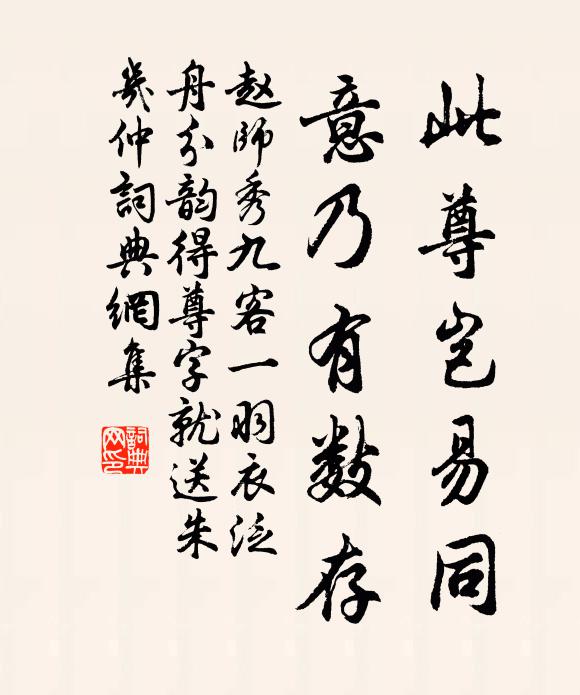 此尊岂易同
意乃有数存
赵師秀九客一羽衣泛
舟分韵得尊字就送朱
幾仲詞典網集
詞典
网印